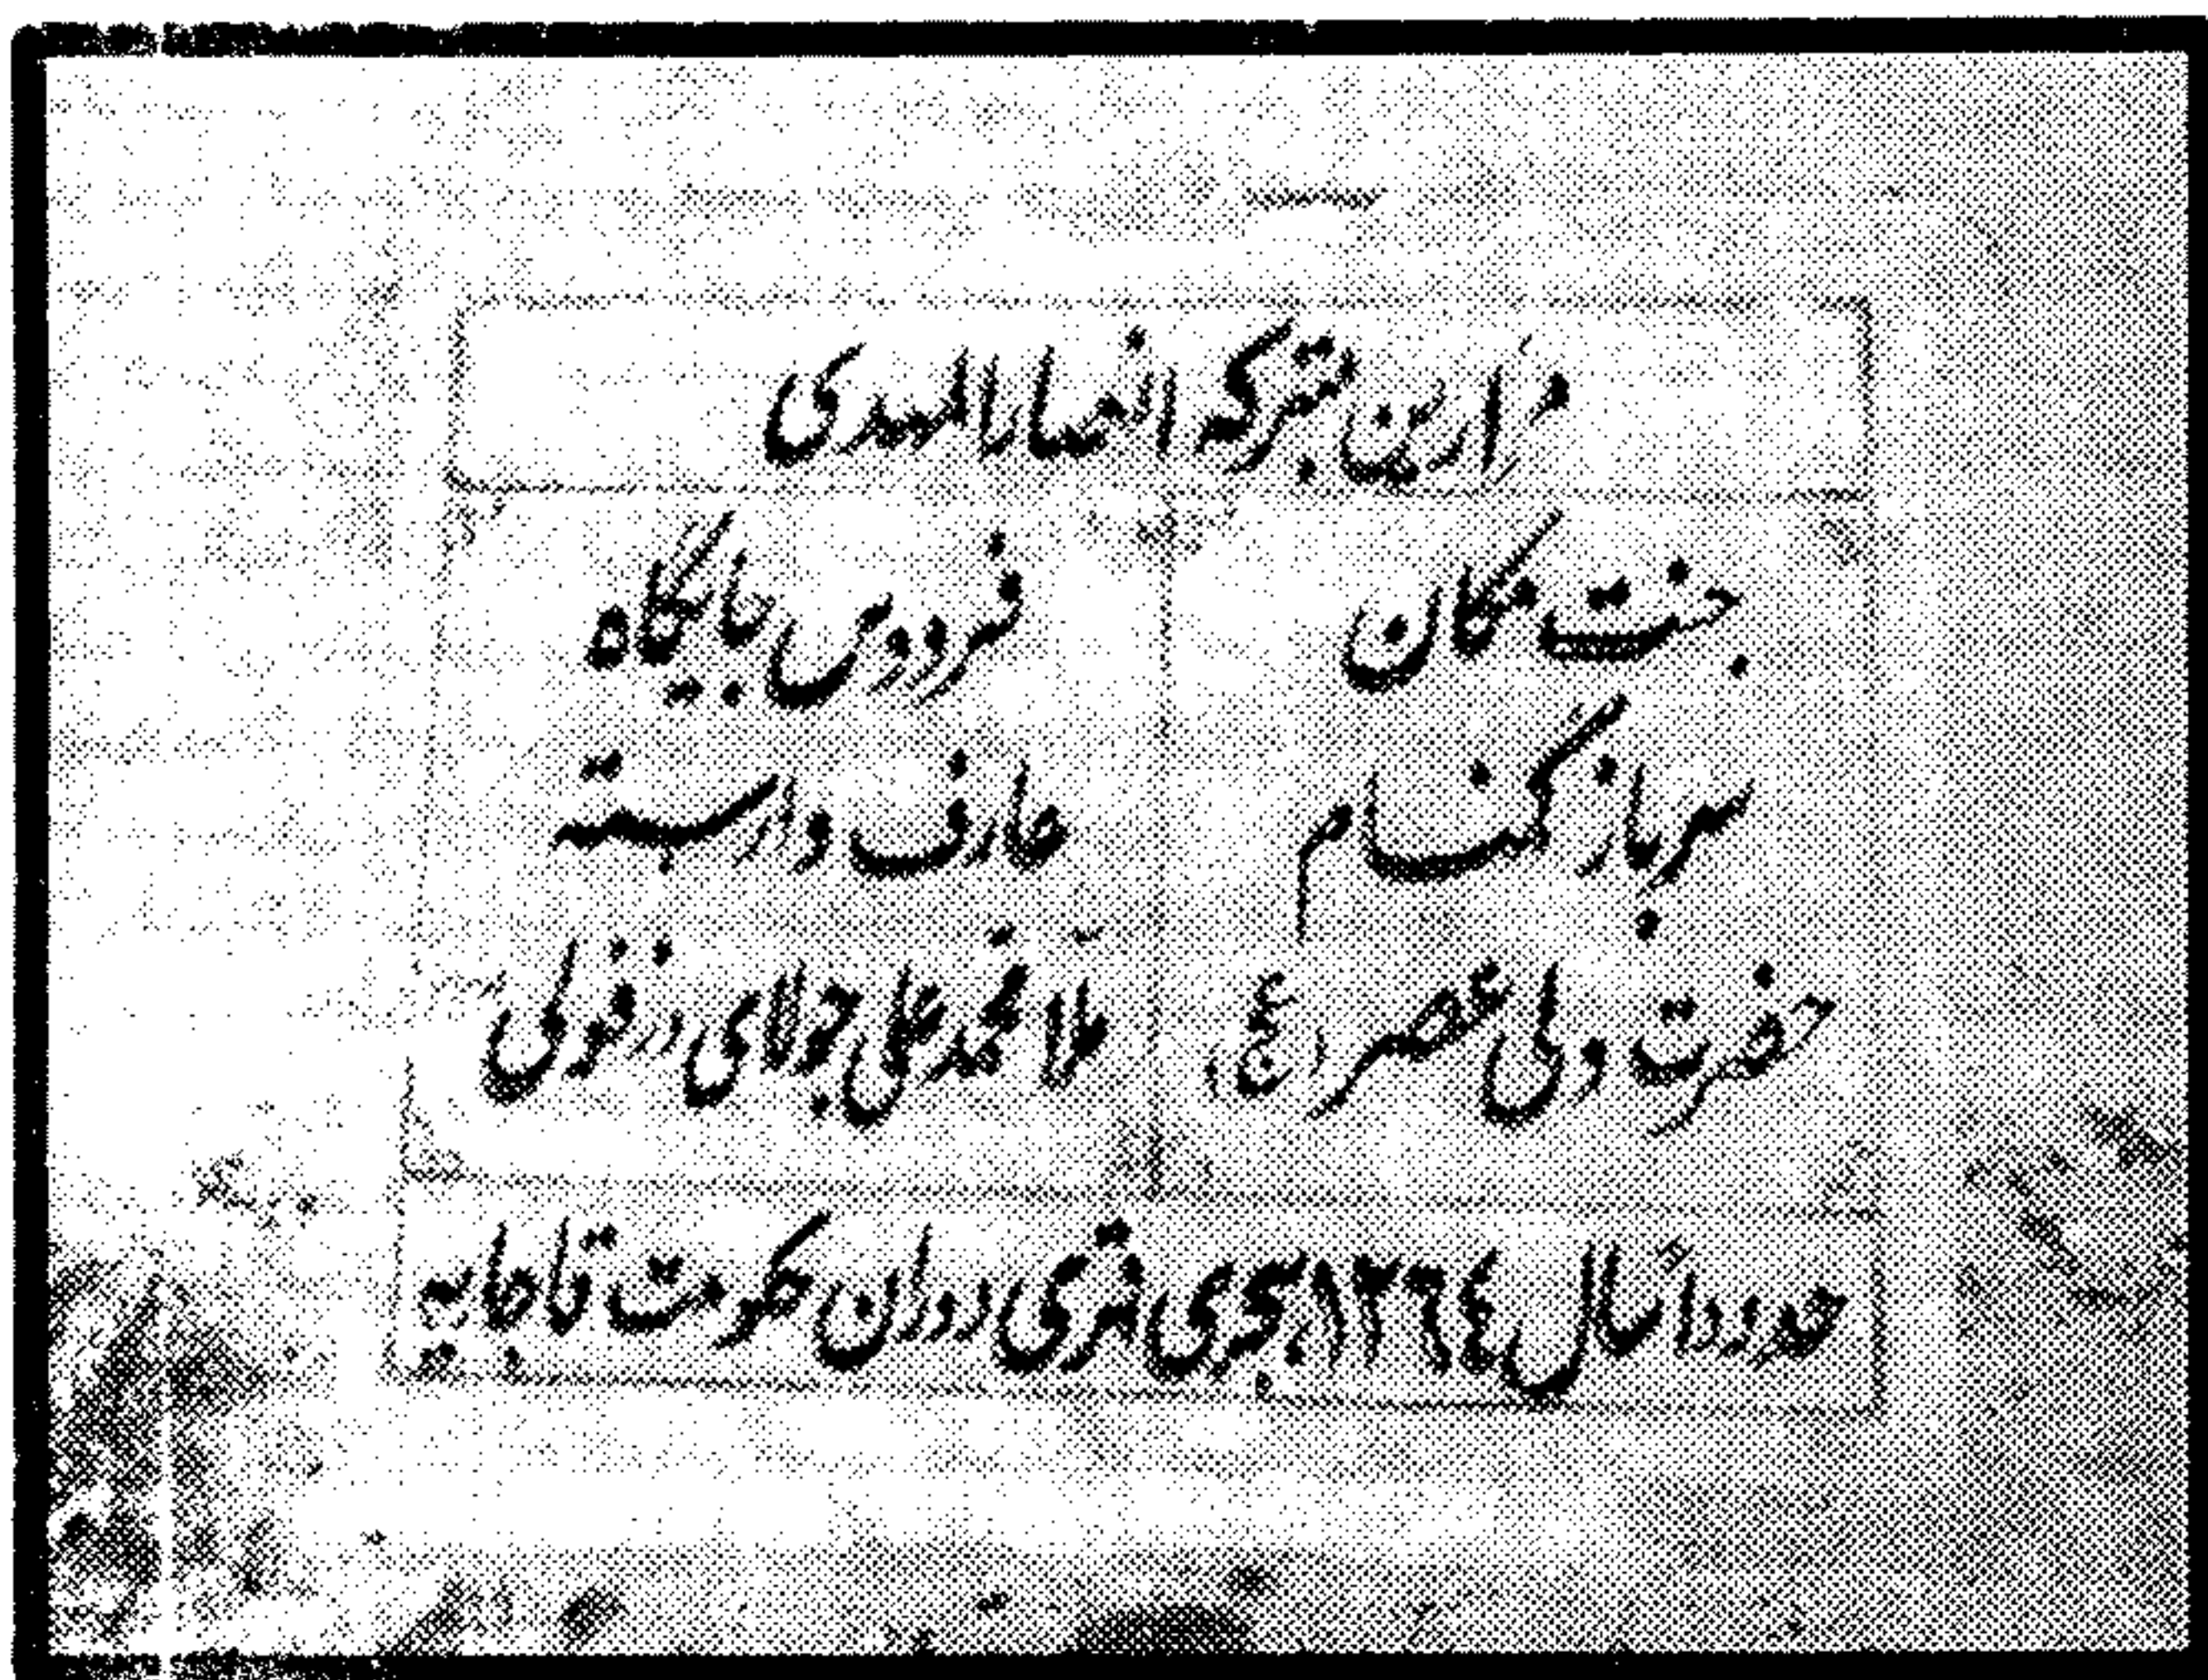 مزارین متبرکه انصارالمهدی
جنت مکان
سرباز گمنام
حضرت ولی عصر (عج)
فردوس جایگاه
عارف وارسته
ملا محمد علی جولای دزفولی
حدودأ سال ١٢٦٤ هجری قمری دوران حکومت قاجاریه